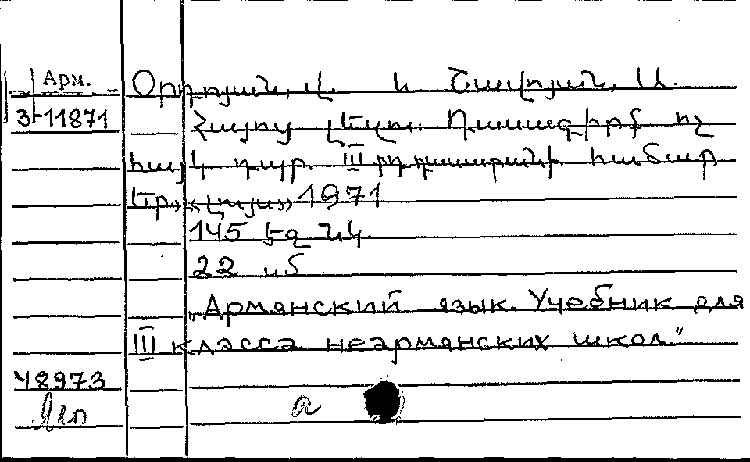 Арм.
3-11871
և Շալոյան, Ա.
Հայոց լեզու. Դասագիրք ոչ
հայկ. դպր. III րդ դասարանի համար
Եր., «Լույս» 1971
145 էջ նկ.
22 սմ
„Армянский язык. Учебник для
III класса неармянских школ."
48973
а